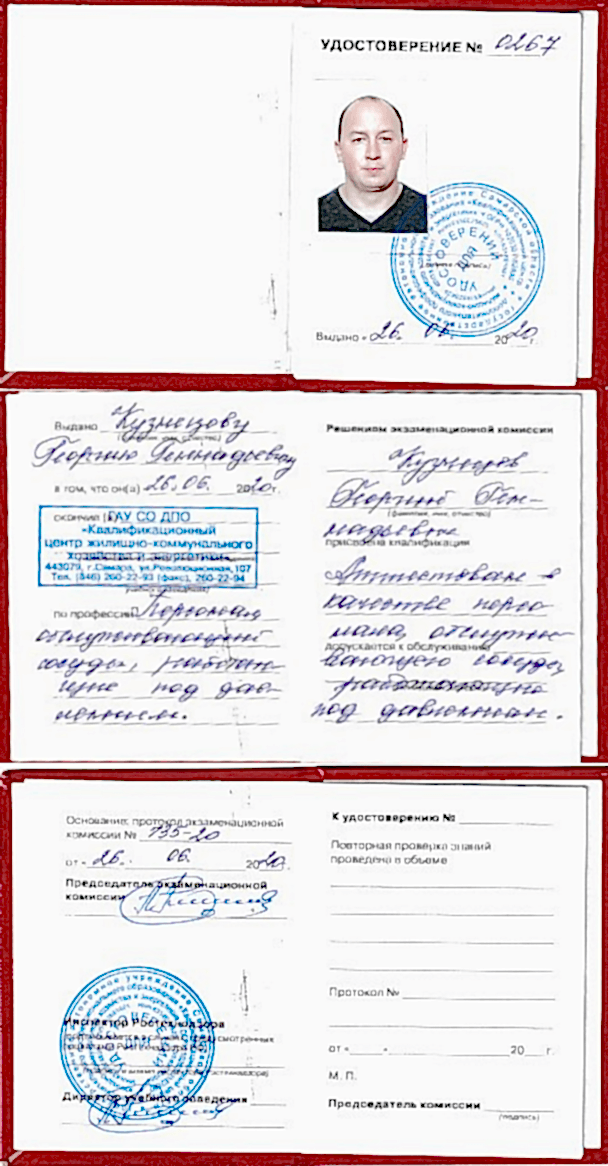 УДОСТОВЕРЕНИЕ № 0267
ДЛЯ
УДОСТОВЕРЕНИЙ
Выдано « 26. 06. 2020 г.
Выдано Кузнецову
(фамилия, имя, отчество)
Георгию Геннадьевичу
в том, что он(а) 26.06. 2020г.
окончил (а)
ГАУ СО ДПО
«Квалификационный
центр жилищно-коммунального
хозяйства и энергетики»
443079, г.Самара, ул.Революционная,107
Тел. (846) 260-22-93 (факс), 260-22-94
по профессии Персонал,
обслуживающий
сосуды, работаю-
щие под дав-
лением.
Решением экзаменационной комиссии
Кузнецов
Георгий Ген-
(фамилия, имя, отчество)
надьевич
присвоена квалификация
Аттестован в
качестве персо-
нала, обслужи-
допускается к обслуживанию
вающего сосуды,
работающие
под давлением.
Основание: протокол экзаменационной
комиссии № 735-20
от « 26. 06. 2020.
Председатель экзаменационной
комиссии
Инспектор Ростехнадзора
Директор учебного заведения
К удостоверению №
Повторная проверка знаний
проведена в объеме
Протокол №
от « » 20 г.
М. П.
Председатель комиссии
(подпись)